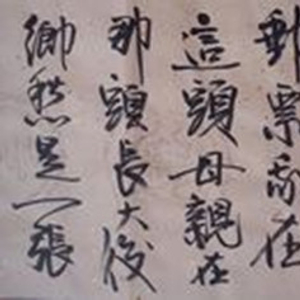 郵票我在
這頭母親在
那頭長大後
鄉愁是一張